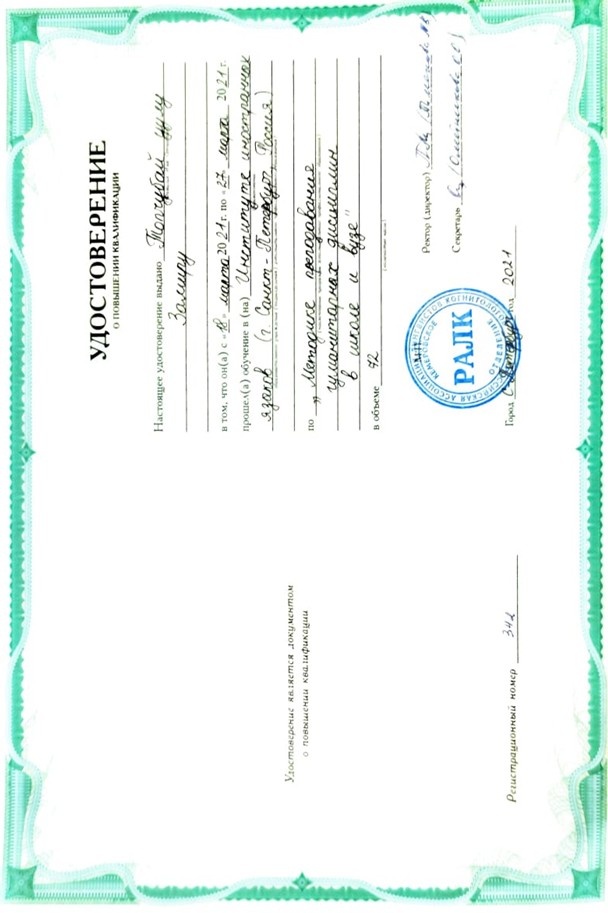 Удостоверение является документом
о повышении квалификации
Регистрационный номер 342
УДОСТОВЕРЕНИЕ
О ПОВЫШЕНИИ КВАЛИФИКАЦИИ
Настоящее удостоверение выдано Топчубай уулу
Замиру
в том, что он(а) с «18» марта 2021 г. по «27» марта 2021 г.
прошел(а) обучение в (на) Институте иностранных
языков (г. Санкт-Петербург, Россия)
по „Методике преподавания
гуманитарных дисциплин
в школе и вузе"
в объеме 72
РОССИЙСКАЯ АССОЦИАЦИЯ ЛИНГВИСТОВ КОГНИТОЛОГОВ
КЕМЕРОВСКОЕ
РАЛК
ОТДЕЛЕНИЕ
Ректор (директор)
Секретарь
Город С-Петербург год 2021